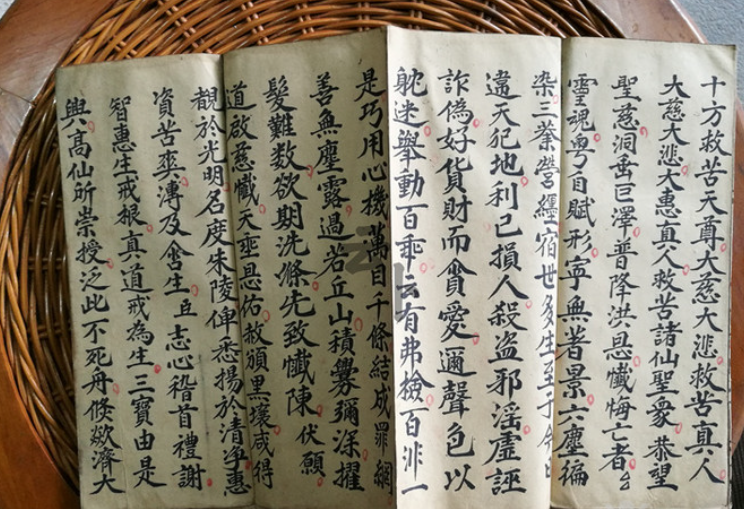 十方救苦天尊大慈大悲救苦真人
大慈大悲大惠真人救苦諸仙聖衆恭望
聖慈洞垂巨澤普降洪恩懺悔亡者厶
靈魂粵自賦形寧無著景六塵徧
染三業營纏宿世多生至于今日
違天犯地利己損人殺盗邪淫虛誑
詐偽好貨財而貪愛邇聲色以
躭迷舉動百乖云有弗檢百非一
是巧用心機萬目千條結成罪網
善無塵露過若丘山積釁彌深擢
髮難数欲期洗滌先致懺陳伏願
道啟慈懺天垂恩佑赦頒黑壤咸得
覩於光明名度朱陵俾悉揚於清淨惠
資苦爽溥及含生五志心稽首禮謝
智惠生戒根真道戒為生三寶由是
興高仙所崇授泛此不死舟倐歘濟大